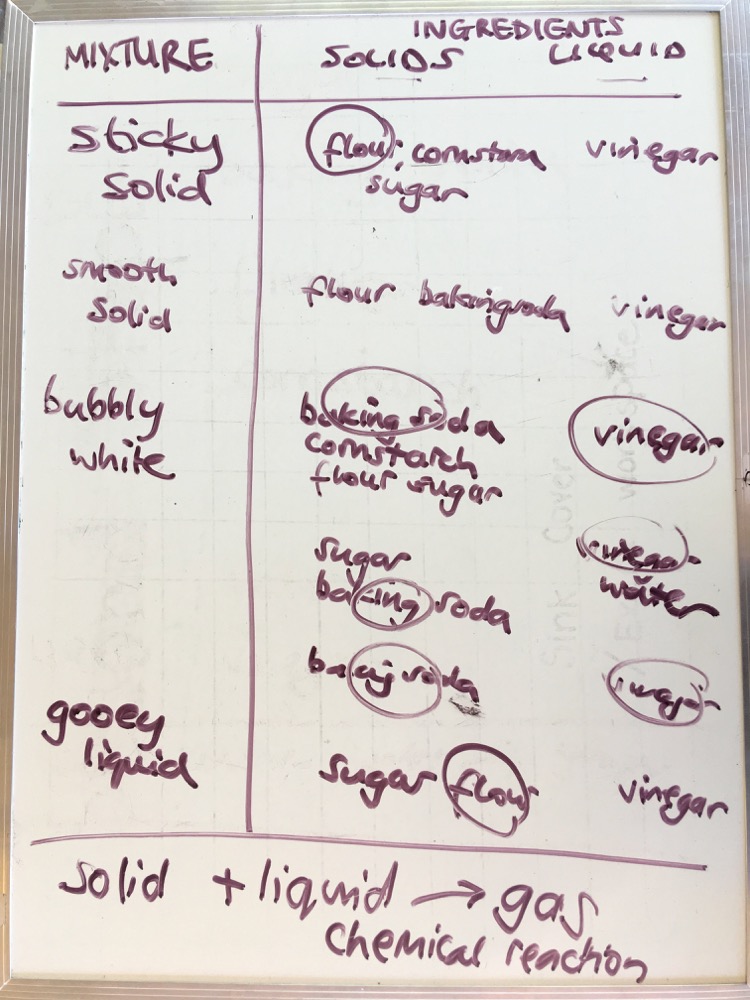 INGREDIENTS
MIXTURE SOLIDS LIQUID
sticky solid
flour, cornstarch
sugar
vinegar
smooth
solid
flour bakingsoda vinegar
bubbly
white
baking soda
cornstarch
flour sugar
vinegar
sugar
baking soda
vinegar
water
baking soda
vinegar
gooey
liquid
sugar flour vinegar
solid + liquid → gas
chemical reaction